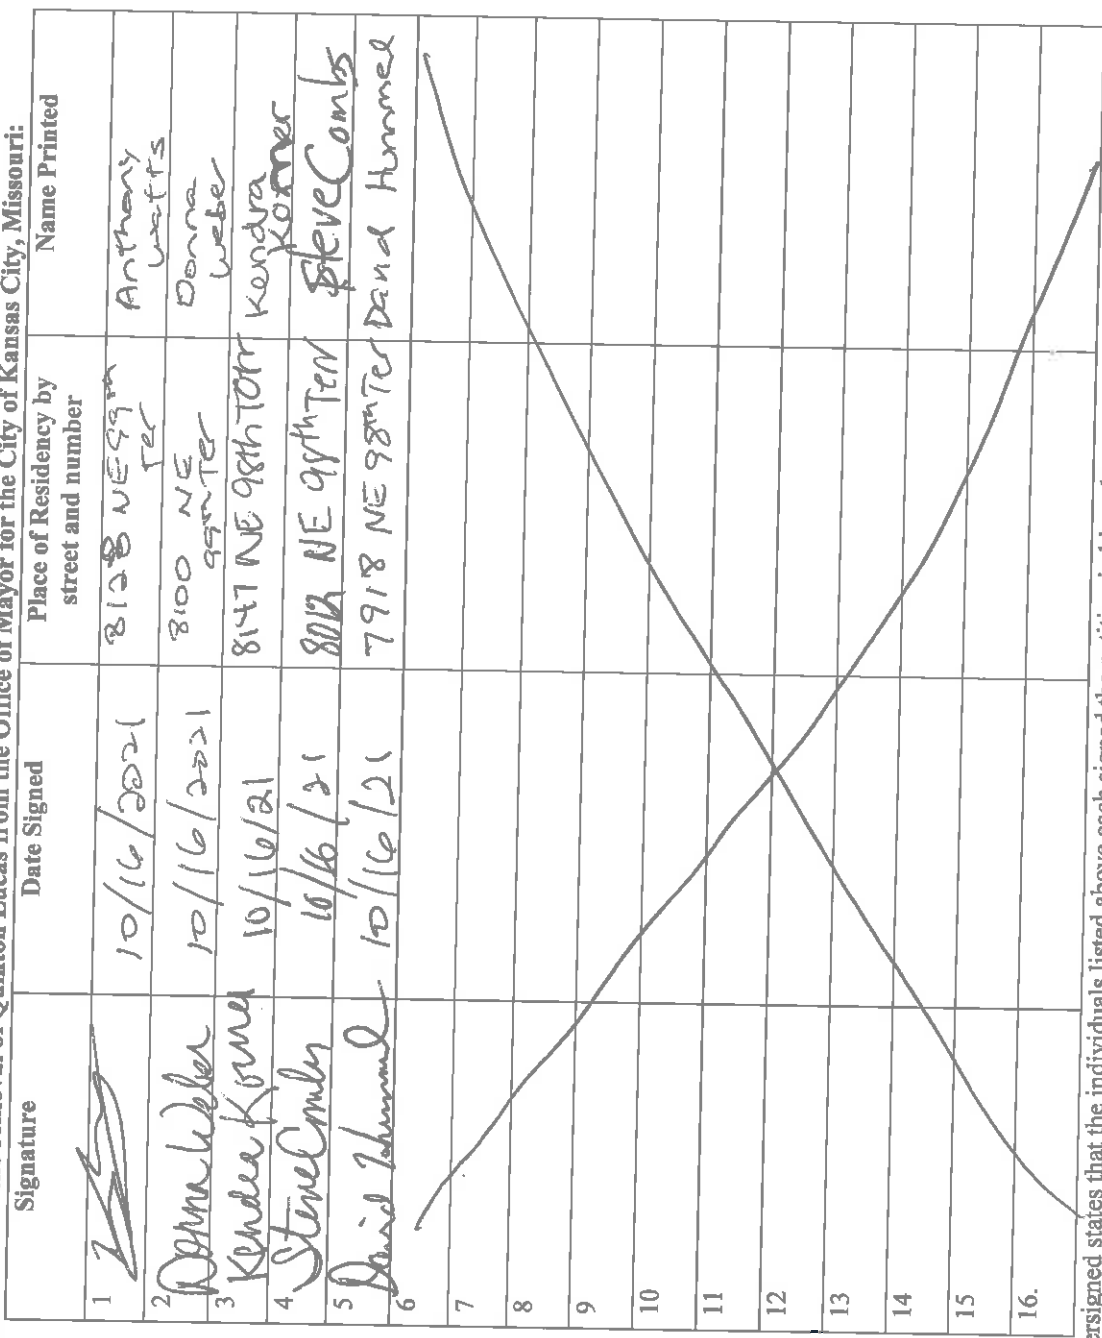 of Quinton Lucas from the Office of Mayor for the City of Kansas City, Missouri:
Signature Date Signed Place of Residency by street and number Name Printed
1 10/16/2021 8128 NE 99th Ter Anthony Watts
2 Donna Weber 10/16/2021 8100 NE 99th Ter Donna Weber
3 Kendra Korner 10/16/21 8147 NE 98th Terr Kendra Korner
4 Steve Combs 10/16/21 8012 NE 98th Terr Steve Combs
5 David Hummel 10/16/21 7918 NE 98th Ter David Hummel
6
7
8
9
10
11
12
13
14
15
16.
ersigned states that the individuals listed above each signed the